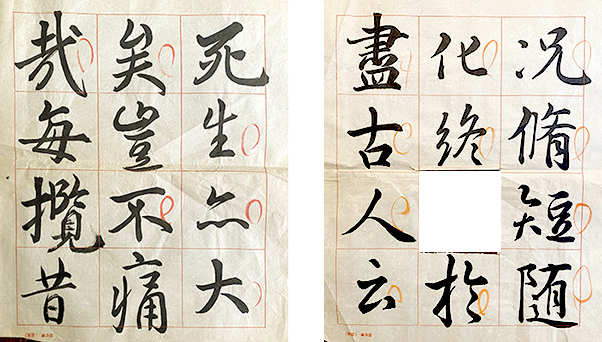 况脩短随
化終於
盡古人云
死生亦大
矣豈不痛
哉每攬昔